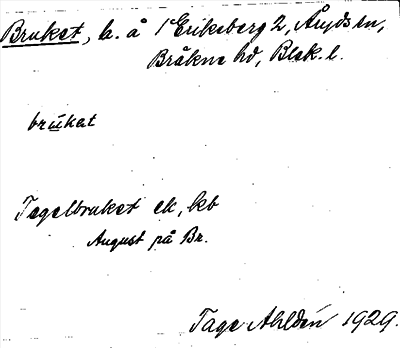 Bruket, b. å 1 Eriksberg 2, Åryds sn,
Bräkne hd, Blek. l.
brukat
Tegelbruket ek, kb
August på Br.
Tage Ahldén 1929.